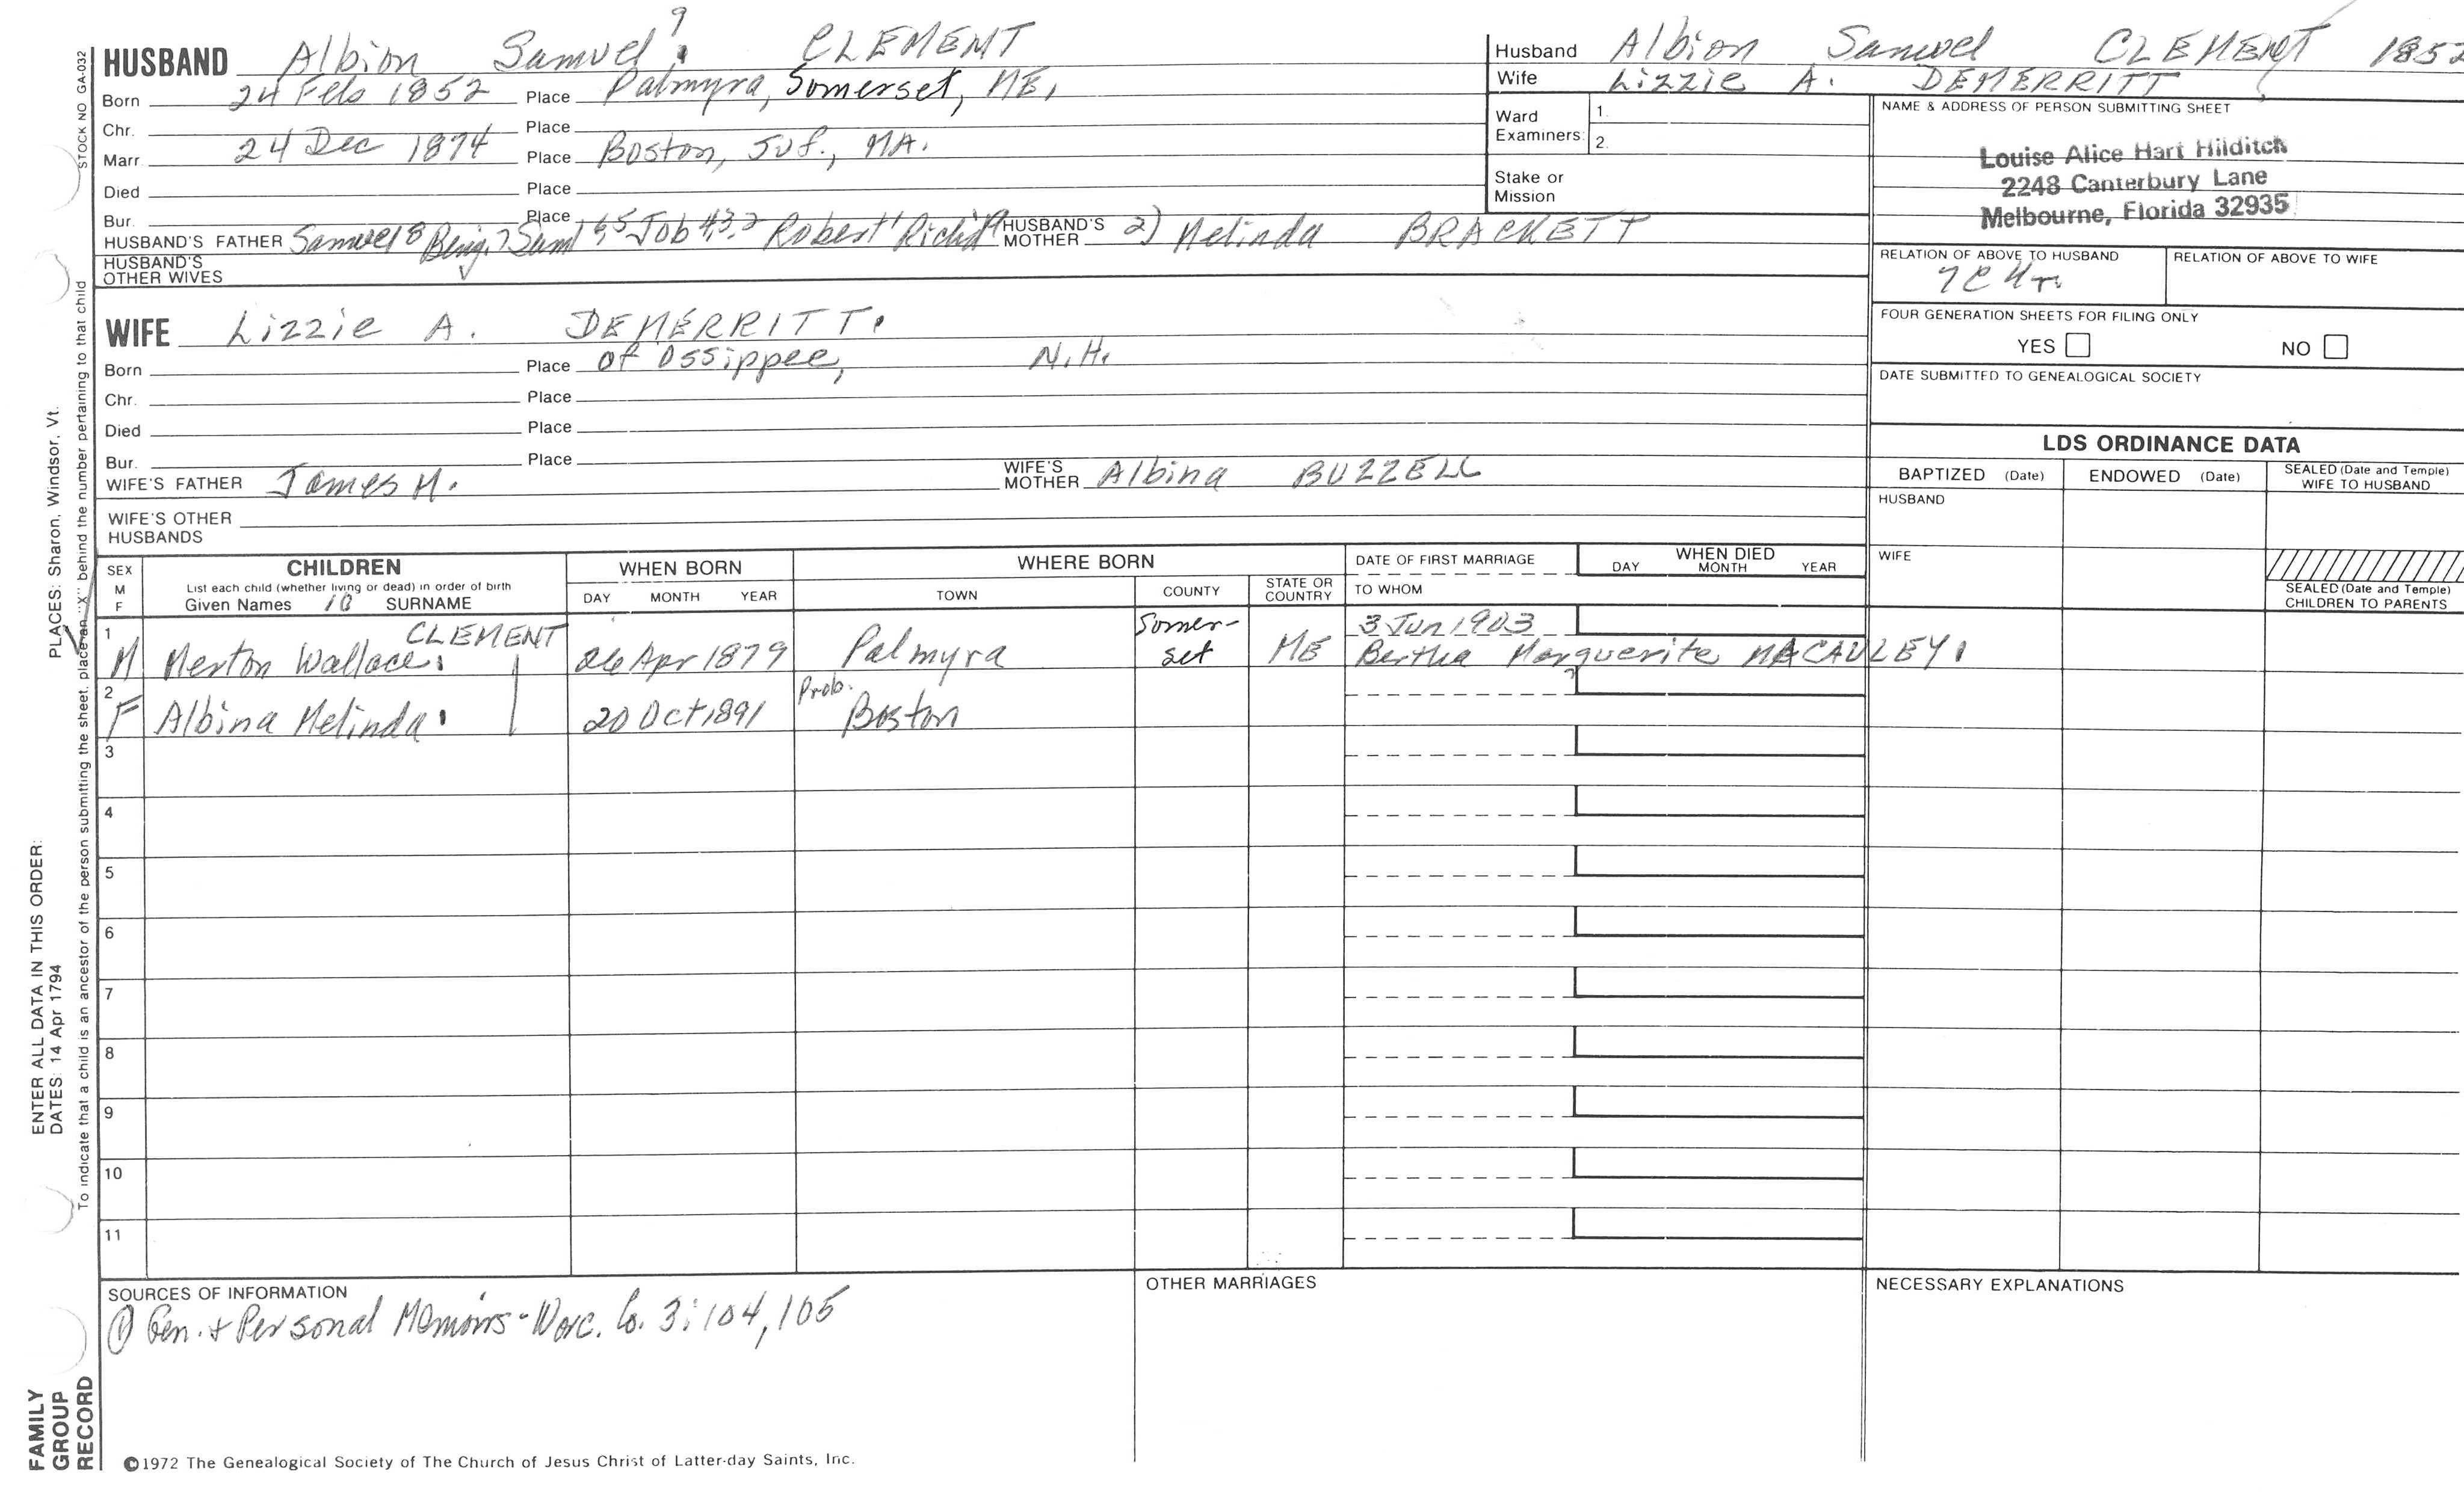 HUSBAND Albion Samuel 9 CLEMENT
Born 24 Feb 1852 Place Palmyra, Somerset, ME,
Chr. Place
Marr. 24 Dec 1874 Place Boston, Suf., MA.
Died Place
Bur. Place
HUSBAND'S FATHER Samuel 8 Benj. 7 Saml 6,5 Job 4,3,2 Robert 1 Richd HUSBAND'S MOTHER 2) Melinda BRACKETT
HUSBAND'S OTHER WIVES
Husband Albion Samuel CLEMENT 1852
Wife Lizzie A. DEMERRITT
Ward Examiners: 1.
2.
Stake or Mission
NAME & ADDRESS OF PERSON SUBMITTING SHEET
Louise Alice Hart Hilditch
2248 Canterbury Lane
Melbourne, Florida 32935
RELATION OF ABOVE TO HUSBAND RELATION OF ABOVE TO WIFE
7C4r.
FOUR GENERATION SHEETS FOR FILING ONLY
YES NO
DATE SUBMITTED TO GENEALOGICAL SOCIETY
WIFE Lizzie A. DEMERRITT.
Born Place of Ossippee, N.H.
Chr. Place
Died Place
Bur. Place
WIFE'S FATHER James M. WIFE'S MOTHER Albina BUZZELL
WIFE'S OTHER HUSBANDS
LDS ORDINANCE DATA
BAPTIZED (Date) ENDOWED (Date) SEALED (Date and Temple) WIFE TO HUSBAND
HUSBAND
WIFE
SEALED (Date and Temple) CHILDREN TO PARENTS
SEX M F CHILDREN WHEN BORN WHERE BORN DATE OF FIRST MARRIAGE WHEN DIED
List each child (whether living or dead) in order of birth
Given Names 10 SURNAME DAY MONTH YEAR TOWN COUNTY STATE OR COUNTRY TO WHOM DAY MONTH YEAR
1 CLEMENT Somer- 3 Jun 1903
M Merton Wallace. 26 Apr 1879 Palmyra set ME Bertha Marguerite MACAULEY.
2 Prob.
F Albina Melinda. 20 Oct 1891 Boston
3
4
5
6
7
8
9
10
11
SOURCES OF INFORMATION OTHER MARRIAGES NECESSARY EXPLANATIONS
① Gen. + Personal Memoirs - Worc. Co. 3:104, 105
©1972 The Genealogical Society of The Church of Jesus Christ of Latter-day Saints, Inc.
STOCK NO GA-032
To indicate that a child is an ancestor of the person submitting the sheet, place an "X" behind the number pertaining to that child
ENTER ALL DATA IN THIS ORDER:
DATES: 14 Apr 1794 PLACES: Sharon, Windsor, Vt.
FAMILY
GROUP
RECORD